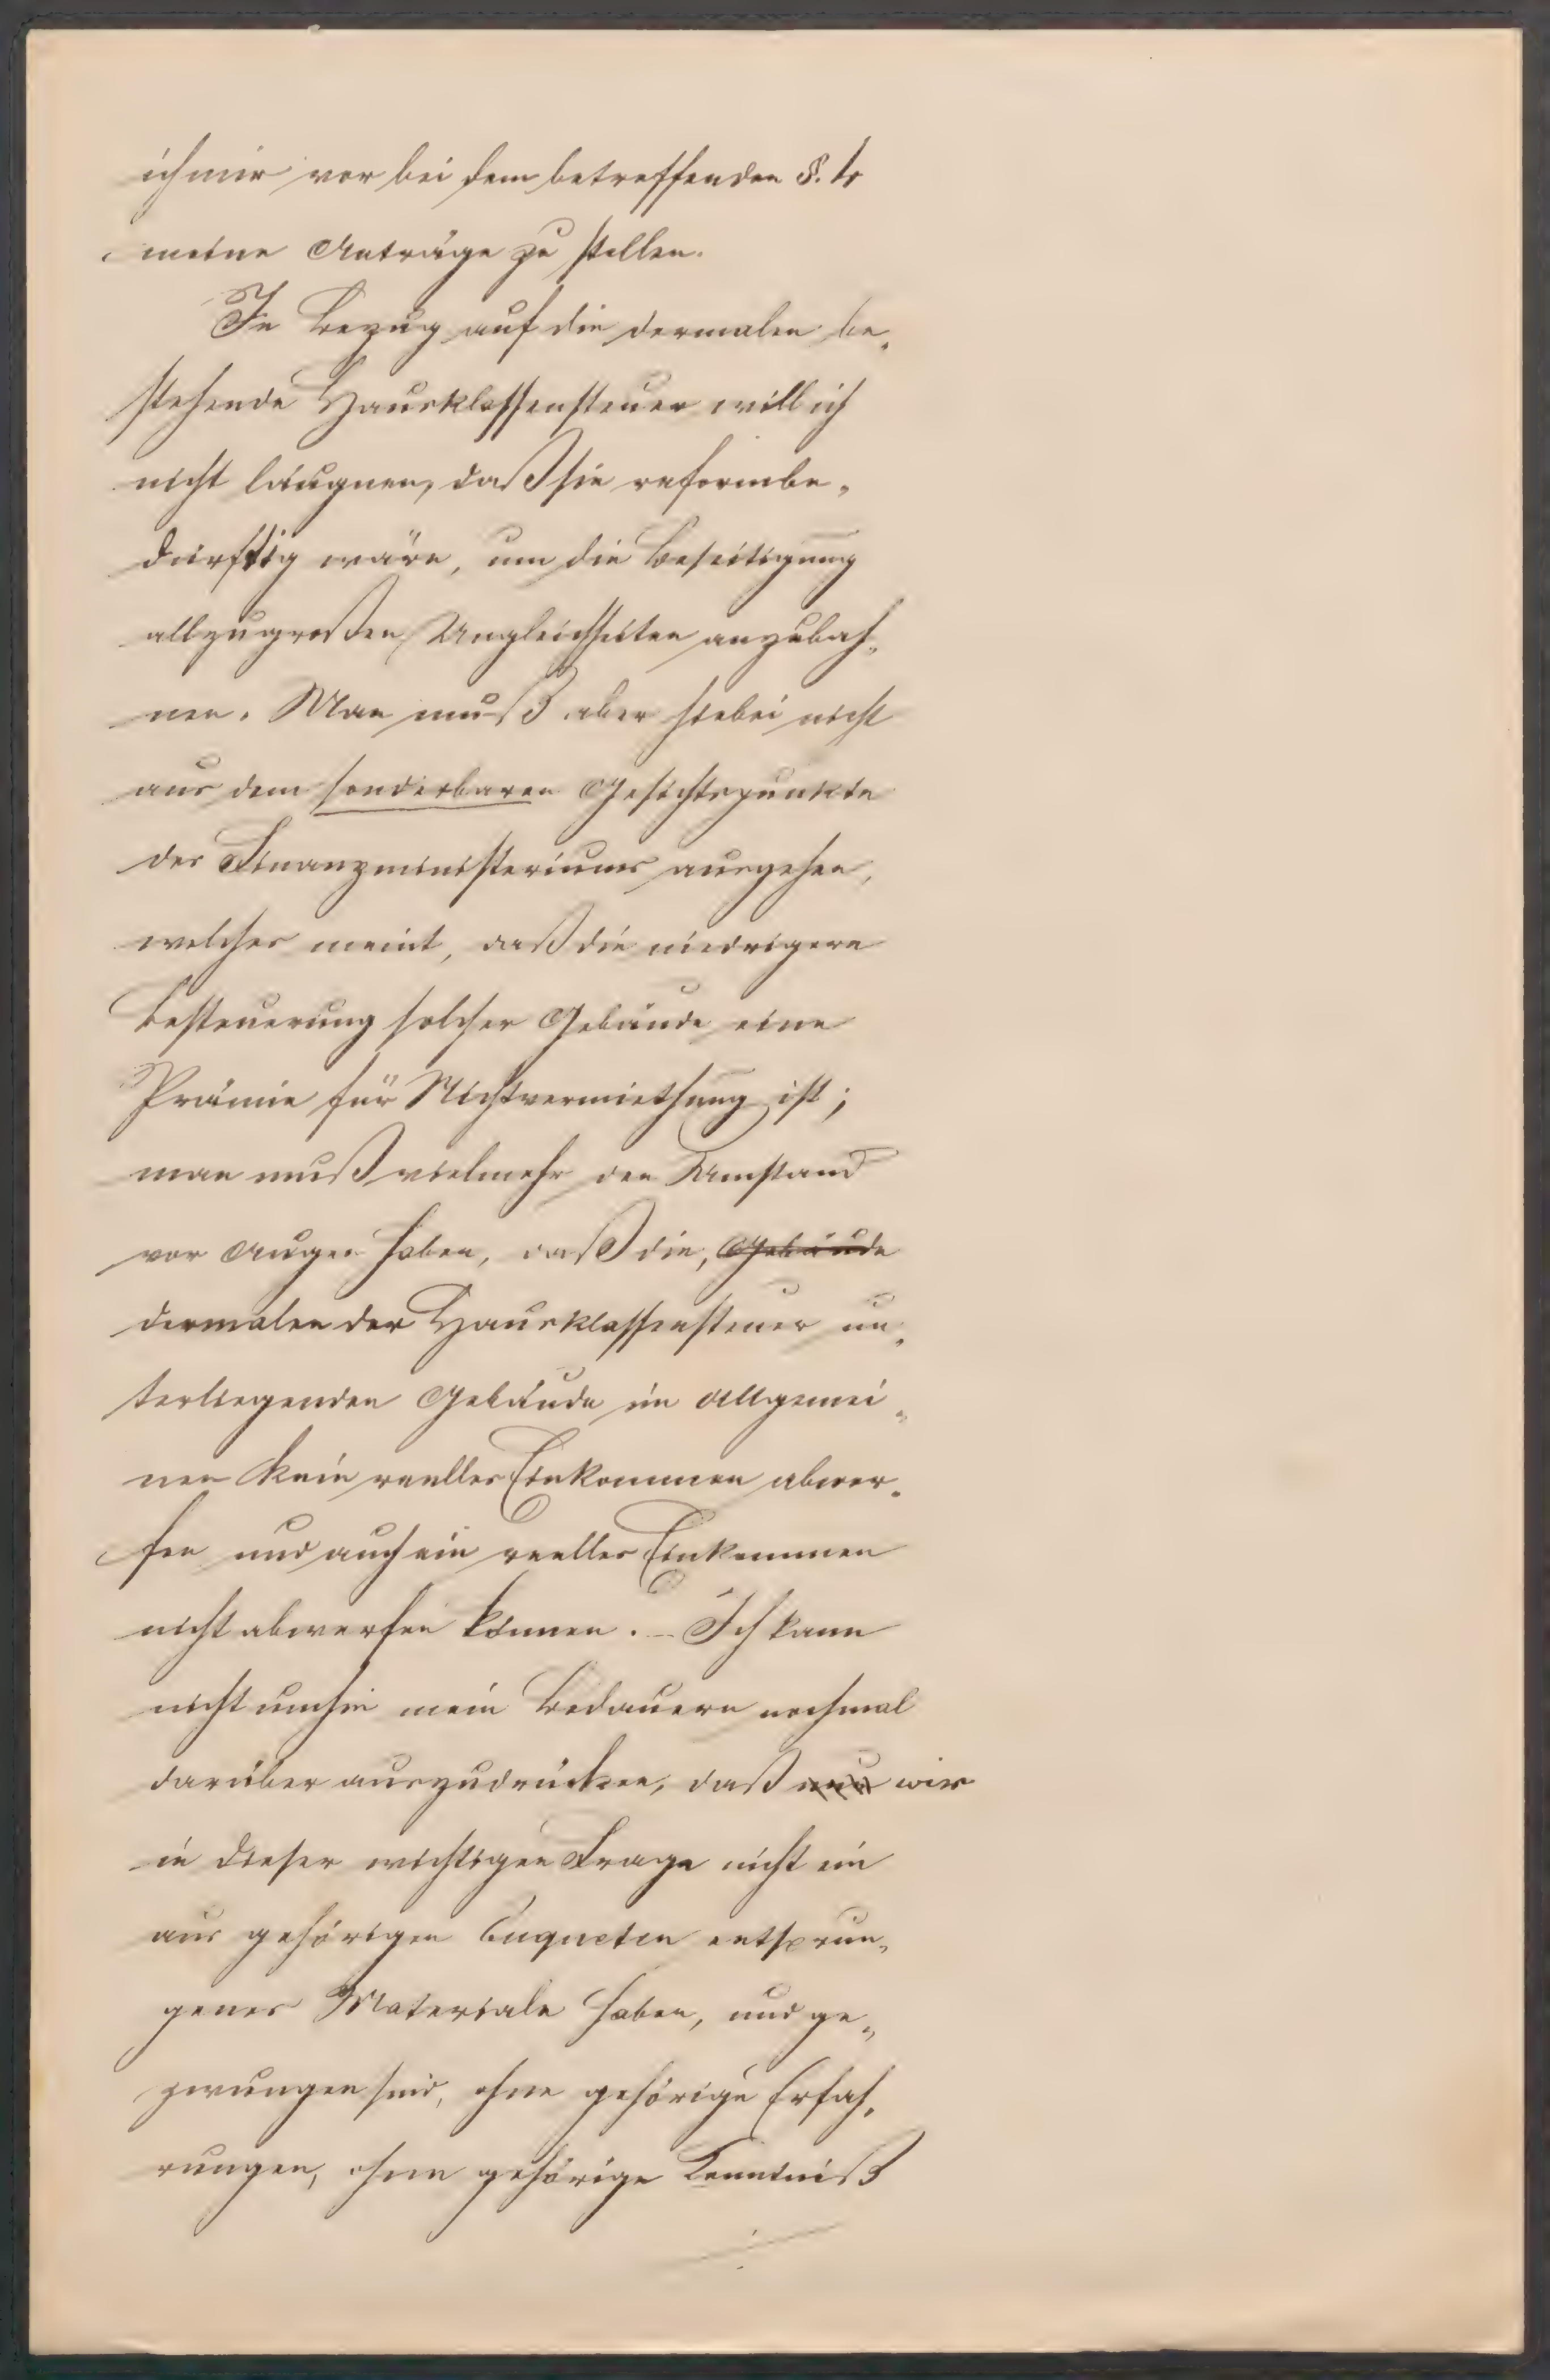 ich mir vor bei dem betreffenden §.
meine Anträge zu stellen.
In Bezug auf die dermalen be„
stehende Hausklassensteuer will ich
nicht läugnen, daß sie reformbe„
dürftig wäre, um die Beseitigung
allzugroßen Ungleichheiten anzubah„
nen. Man muß aber hiebei nicht
aus dem sonderbaren Gesichtspunkte
des Finanzministeriums ausgehen,
welches meint, daß die niedrigere
Besteuerung solcher Gebäude eine
Prämie für Nichtvermiethung ist;
man muß vielmehr den Umstand
vor Augen haben, daß die, Gebäude
dermalen der Hausklassensteuer un„
terliegenden Gebäude im Allgemei„
nen kein reelles Einkommen abwer„
fen und auch ein reelles Einkommen
nicht abwerfen können. – Ich kann
nicht umhin mein Bedauern nochmal
darüber auszudrücken, daß nun wir
in dieser wichtigen Frage nicht ein
aus gehörigen Enqueten entsprun„
genes Materiale haben, und ge„
zwungen sind, ohne gehörige Erfah„
rungen, ohne gehörige Kenntniß